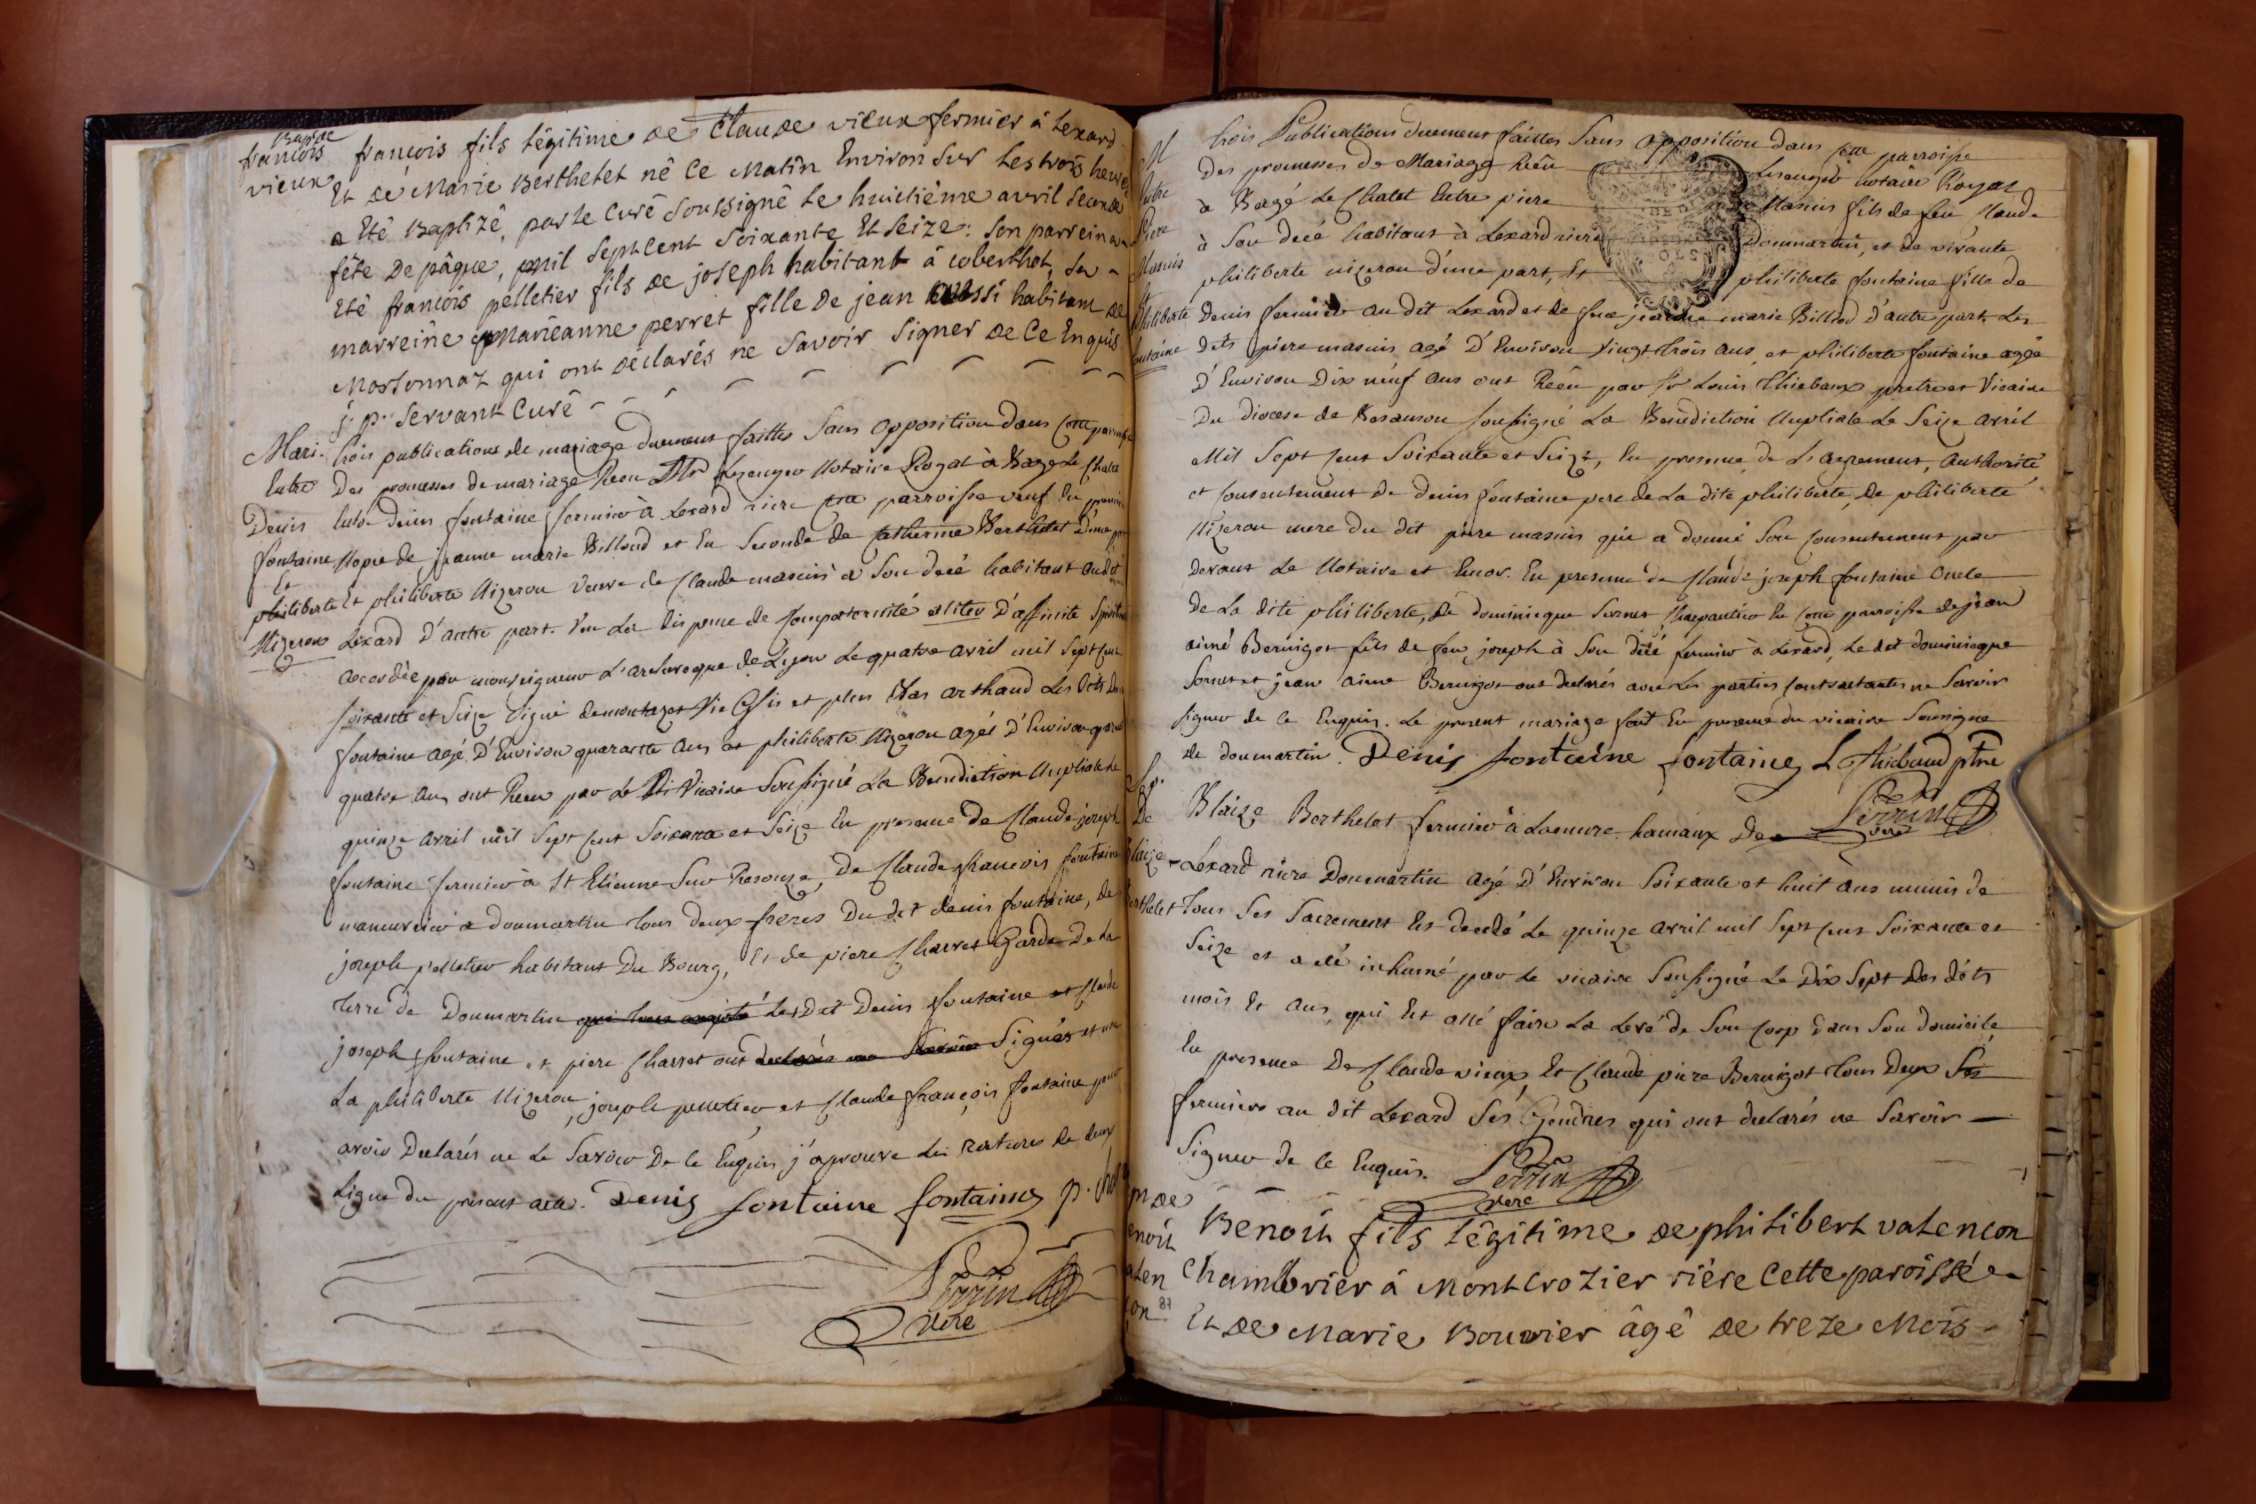 Bapte de
francois
vieux
francois fils légitime de Claude vieux fermier à Lexard
Et de Marie Berthelet né Ce Matin Environ sur Les trois heures
a Eté Baptizé, par le Curé soussigné Le huictième avril seconde
fête de pâque, mil Septcent soixante Et seize: son parrein a
Eté francois pelletier fils de joseph habitant à coberthot, sa
marreine Marieanne perret fille de jean aussi habitant de
Mortonnaz qui ont déclarés ne savoir signer de Ce Enquis
j: p: servant Curé
Mari.
Entre
Denis
fontaine
Et
philiberte
Nizeron
trois publications de mariage duement faittes sans opposition dans cette parroisse
Des promesses de mariage Recu Mr Lezenger Notaire Royal à Bagé Le Chatel
Entre denis fontaine fermier à Lexard riere cette parroisse veuf En premiere
Nopce de jeanne marie Billoud et En seconde de Catherine Berthelet d'une part
Et philiberte Nizeron veuve de Claude manoin à son decé habitant audit
Lexard d'autre part. vu La dispense de Compaternité d'affinite spirituelle
accordée par monseigneur L'archeveque de Lyon Le quatre avril mil sept cent
soixante et seize signé demontazet Vic et plus bas arthaud Les dits denis
fontaine agé D'Environ quarante ans et philiberte Nizeron agée d'Environ quarante
quatre ans ont Recu par Le Vicaire soussigné La Benediction Nuptiale Le
quinze avril mil sept cent soixante et seize En presence De Claude joseph
fontaine fermier à St Etienne sur Resouze, De Claude francois fontaine
maneuvrier à doumartin tous deux freres Du dit denis fontaine, de
joseph pelletier habitant Du Bourg, Et de piere Charret Garde De La
terre de Doumartin qui tous Les Dit Denis fontaine et Claude
joseph fontaine et piere Charret ont declarés ne savoir signés et non
La philiberte Nizeron, joseph pelletier et Claude françois fontaine pour
avoir Declarés ne Le savoir De Ce Enquis j'aprouve Les ratures de deux
Ligne du present acte. Denis fontaine fontaine p. Charret
Perrin
vire
M
Entre
Piere
Manoin
Et
philiberte
fontaine
trois Publications duement faittes sans opposition dans cette parroisse
Des promesses de Mariage Recu Lezenger notaire Royal
à Bagé Le Chatel Entre piere Manoin fils de feu Claude
à son decé habitant à Lexard riere Doumartin, et de vivante
philiberte nizeron d'une part, Et philiberte fontaine fille de
denis fermier au dit Lexard et de fue jeanne marie Billoud d'autre part. Les
dits piere manoin agé D'Environ vingt trois ans et philiberte fontaine agée
D'Environ Dix neuf ans ont Recu par sr Louis Thiebaux pretre et Vicaire
Du diocese de Besanson soussigné La Benediction Nuptiale Le seize avril
Mil sept cent soixante et seize, En presence de L'agrement, authorité
et consentement de denis fontaine pere de La dite philiberte, de philiberte
Nizeron mere du dit piere manoin qui a donné son consentement par
devant Le Notaire et Encor. En presence de Claude joseph fontaine oncle
de La dite philiberte, de dominique sornet charpentier En cette parroisse de jean
aimé Bernigot fils de feu joseph à son décé fermier à Lexard, Le dit dominique
sornet et jean aimé Bernigot ont declarés avec Les parties contractantes ne savoir
signer de Ce Enquis. Le present mariage fait En presence du vicaire soussigne
de doumartin. Denis fontaine fontaine L Thiebaud ptre
Perrin
vire
Sep.
De
Blaize
Berthelet
Blaize Berthelet fermier à Lamure hamaux De
Lexard riere Doumartin agé D'Environ soixante et huit ans munis de
tous ses sacrement Est decedé Le quinze avril mil sept cent soixante et
seize et a eté inhumé par Le vicaire soussigné Le Dix sept des dits
mois Et ans, qui Est allé faire La Levé de son Corp dans son domicile
En presence De Claude vieux Et Claude piere Bernigot tous deux ses
fermiers au dit Lexard ses Gendres qui ont declarés ne savoir
signer de Ce Enquis. Perrin
vire
de
Benoit
valen
con
87
Benoit fils légitime de philibert valencon
Chambrier à Montcrozier rière Cette paroisse
Et de Marie Bouvier âgé de treze Mois